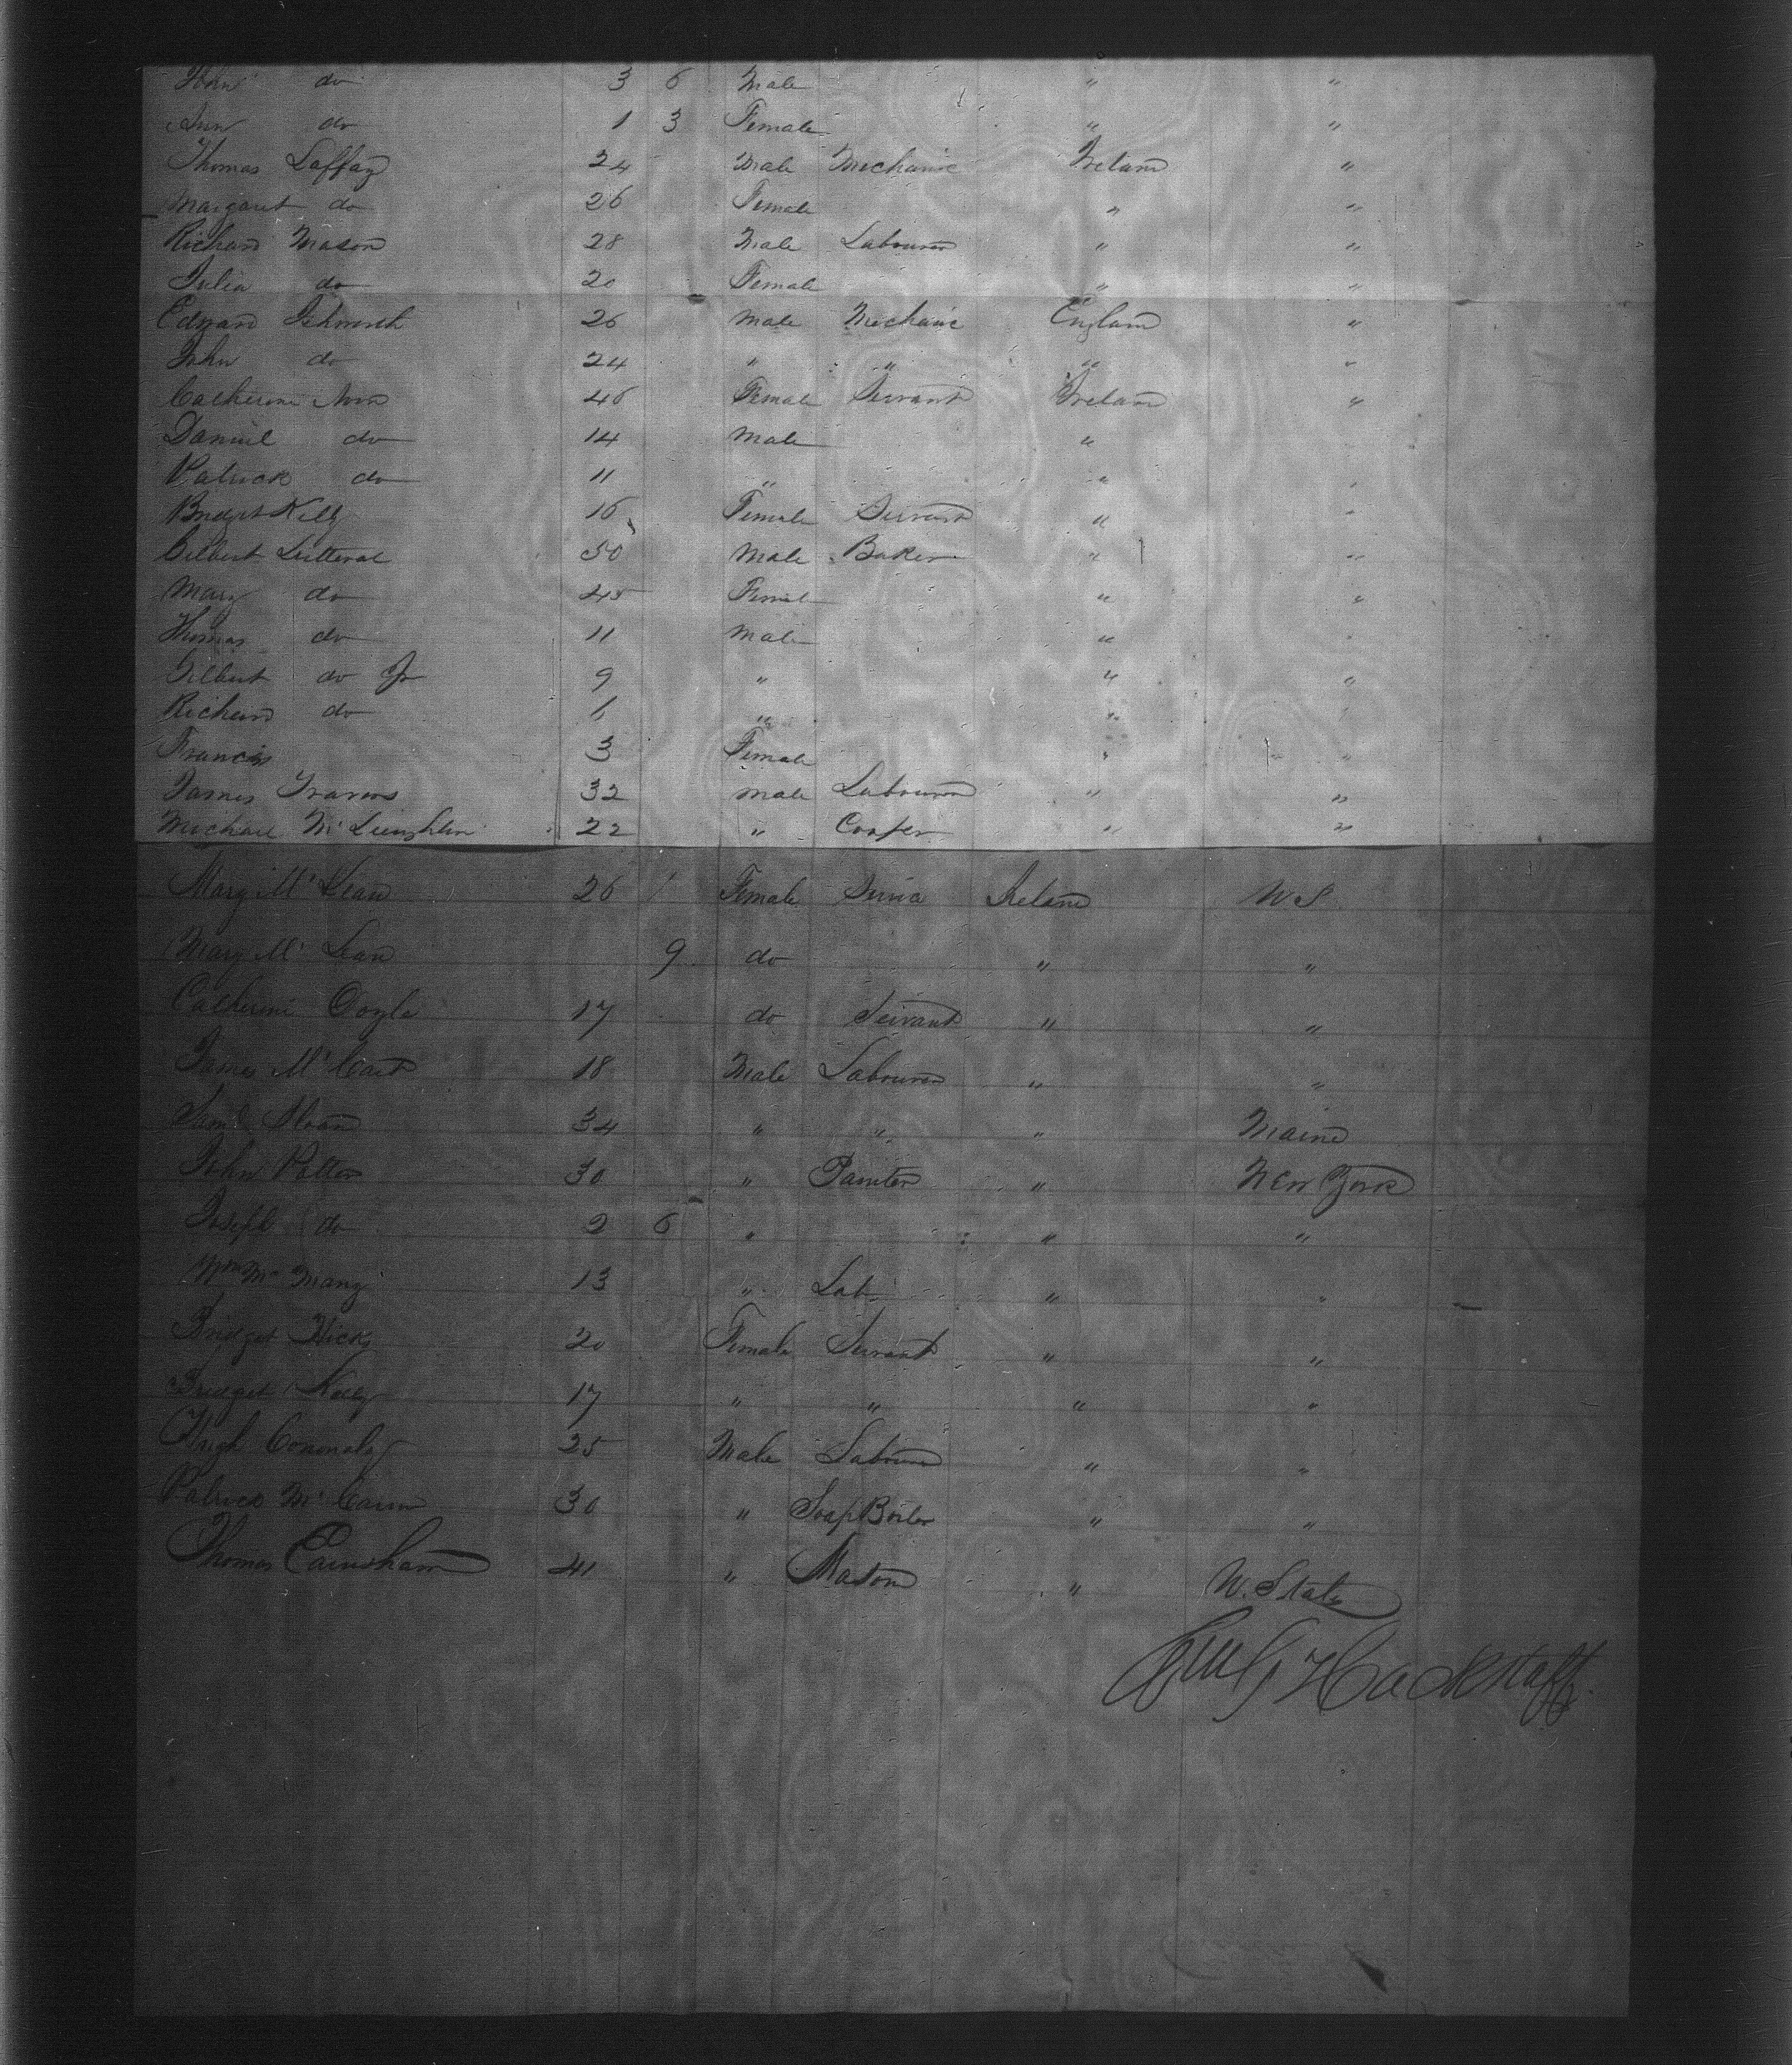 John do 3 6 Male " "
Ann do 1 3 Female " "
Thomas Laffan 24 Male Mechanic Ireland "
Margaret do 26 Female " "
Richard Mason 28 Male Labourer " "
Julia do 20 Female " "
Edward 26 Male Mechanic England "
John do 24 " " " "
Catherine 46 Female Servant Ireland "
Daniel do 14 Male " "
Patrick do 11 " " "
Bridget Kelly 16 Female Servant " "
Gilbert Lutteral 50 Male Baker " "
Mary do 45 Female " "
Thomas do 11 Male " "
Gilbert do Jr 9 " " "
Richard do 6 " " "
Francis 3 Female " "
James Travers 32 Male Labourer " "
Michael McLaughlin 22 " Cooper " "
Mary McLean 26 Female Ireland U S
Mary McLean 9 do " "
Catherine Doyle 17 do Servant " "
James McCart 18 Male Labourer " "
Saml Sloan 34 " " " Maine
John Potter 30 " Painter " New York
Joseph do 2 6 " " "
Wm 13 " Lab " "
Bridget Hicks 20 Female Servant " "
Bridget Kelly 17 " " " "
Hugh Cononaly 25 Male Labourer " "
Patrick McCann 30 " Soap Boiler " "
Thomas 41 " Mason " U. States
Hackstaff